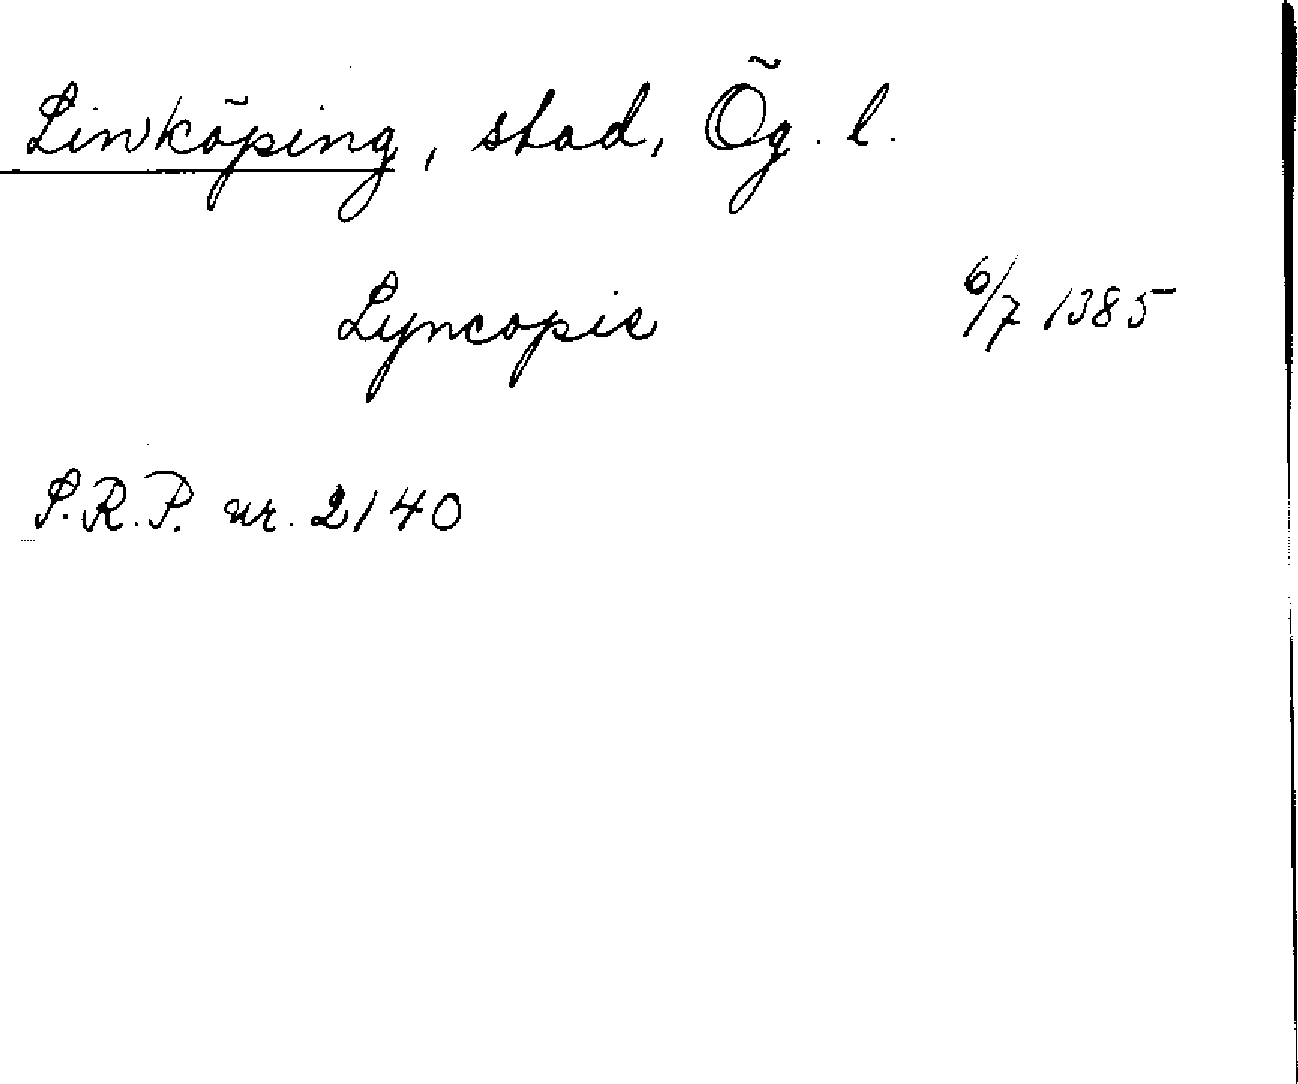 Linköping, stad, Ög. l.
Lyncopie 6/7 1385
S.R.P. nr. 2140